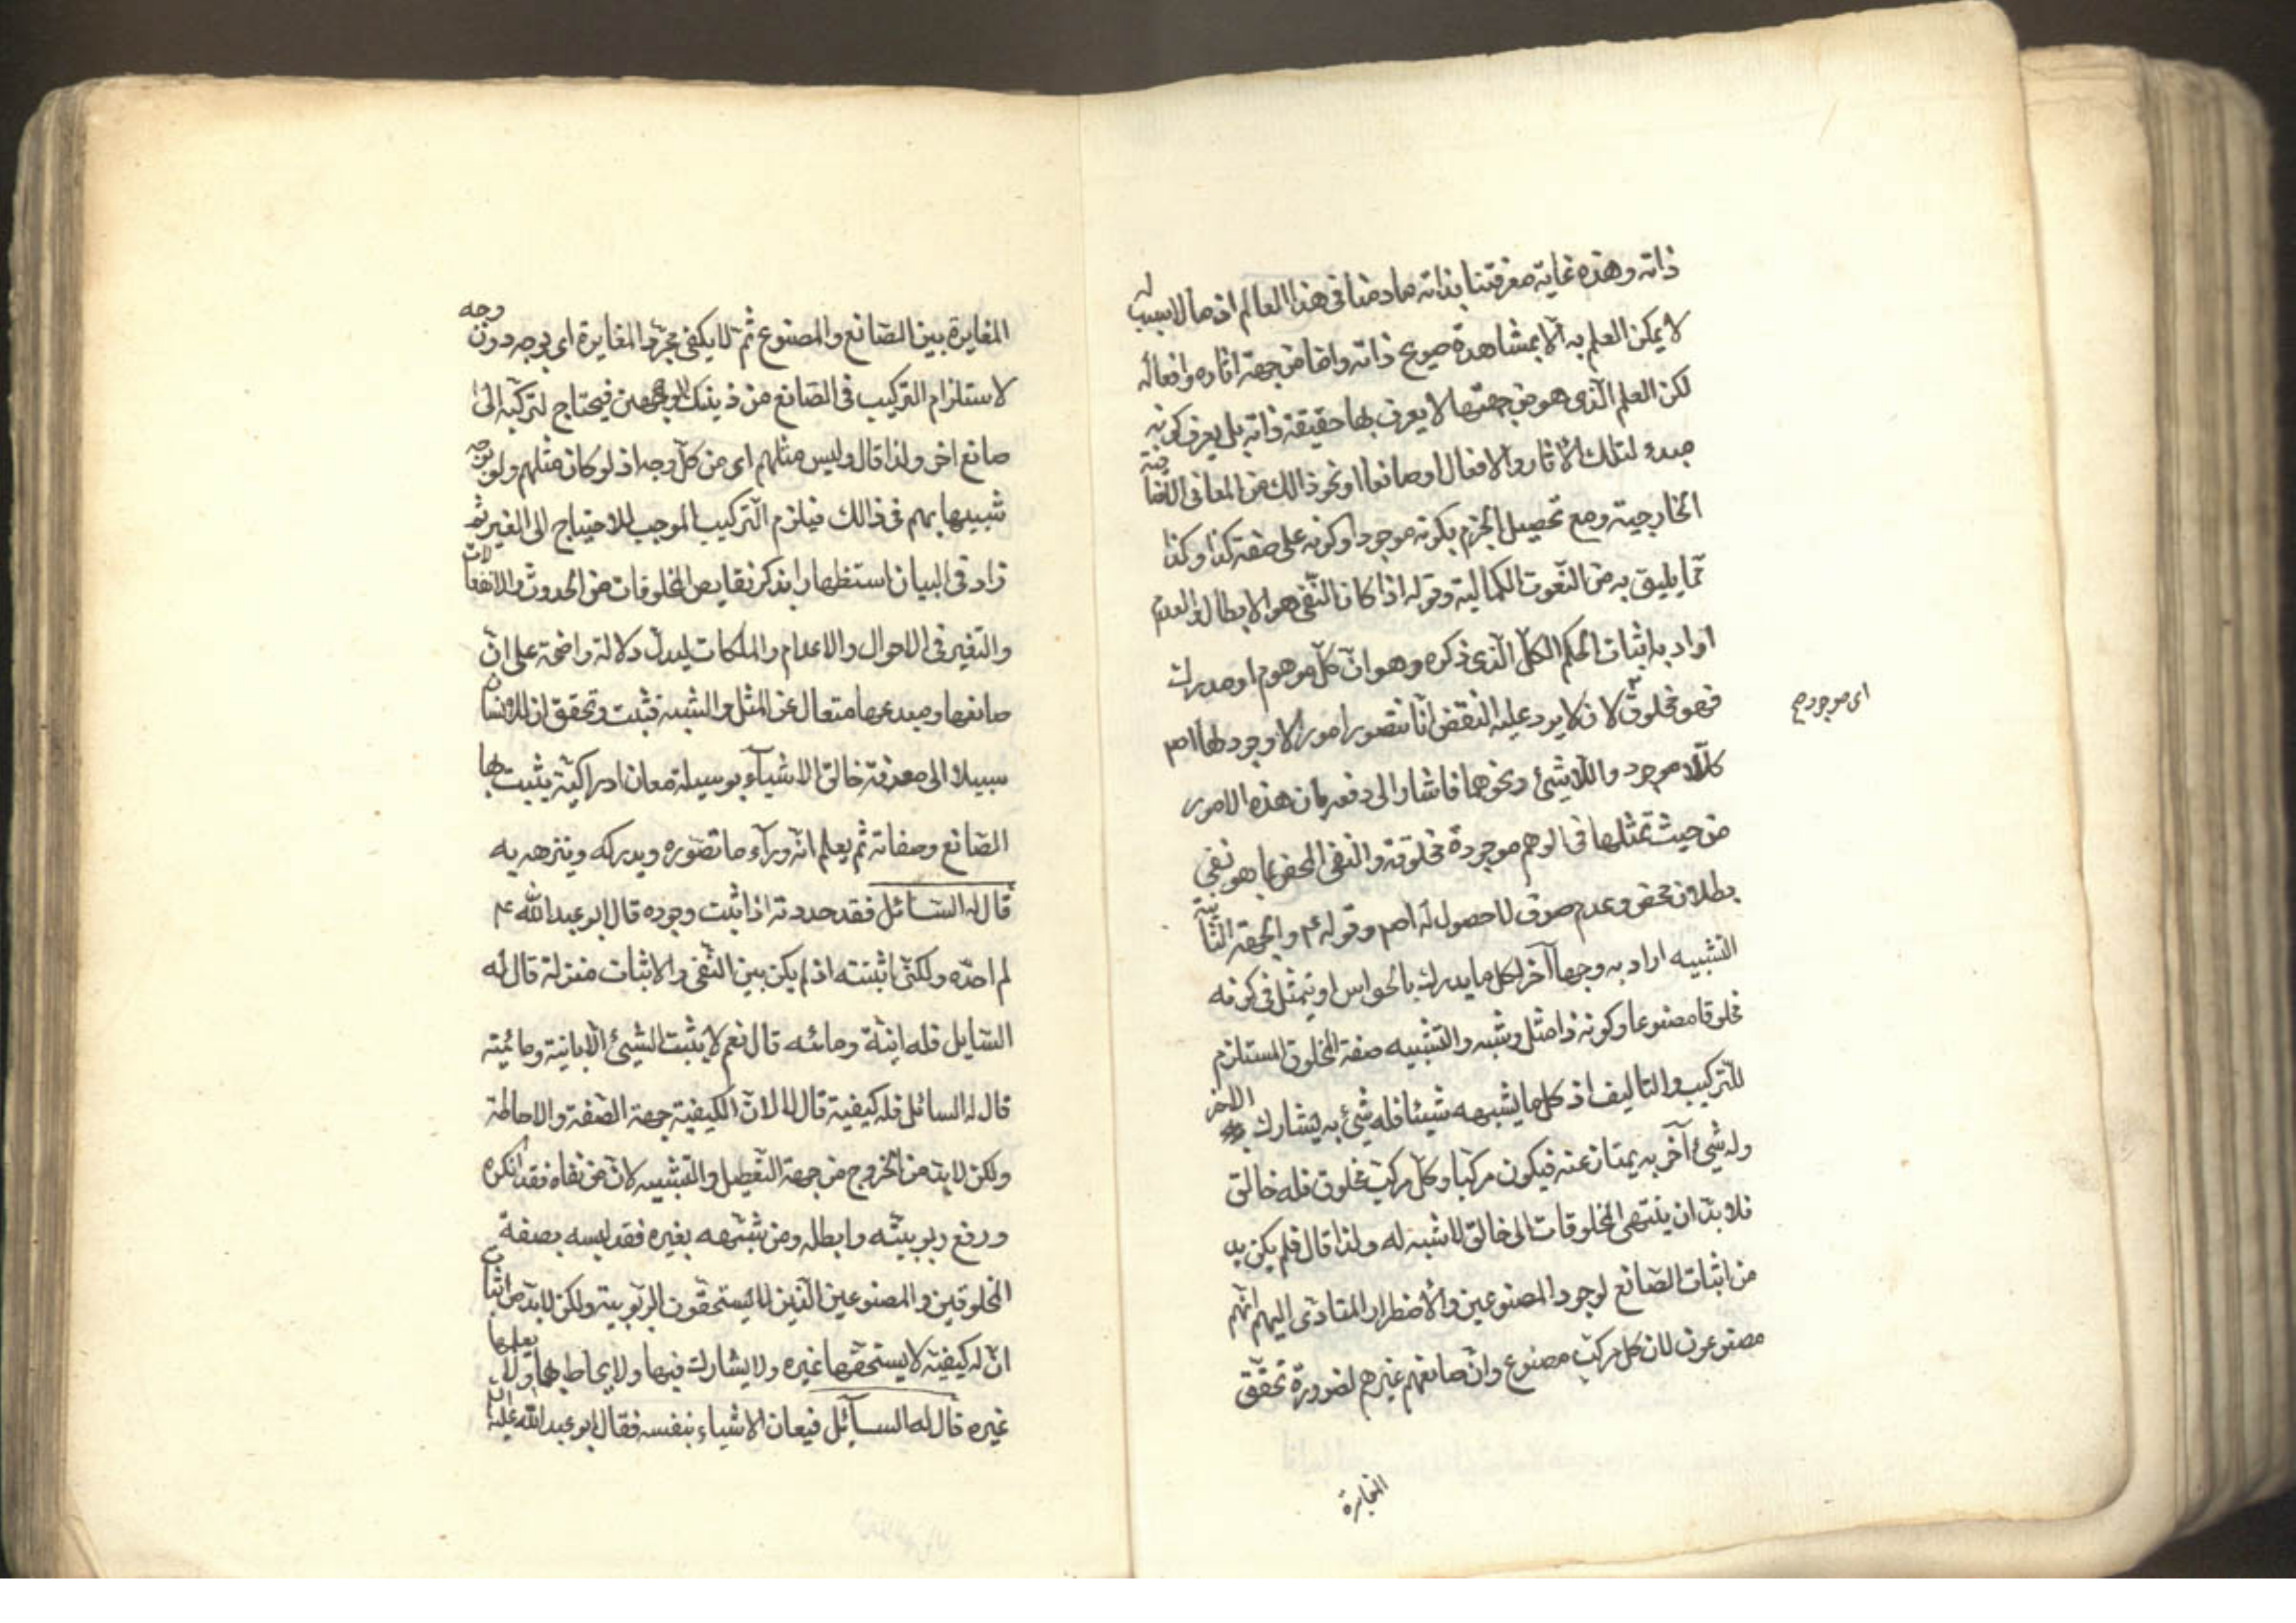 ذاته وهذه غاية معرفتنا بذاته مادمنا فى هذا العالم اذ مالا سبب له
لا يمكن العلم به الا بمشاهدة صريح ذاته واما من جهة اثاره وافعاله
لكن العلم الذى هو من جهتها لا يعرف بها حقيقة ذاته بل يعرف كونه
مبدء لتلك الآثار والافعال او صانعا او نحو ذالك من المعانى
الخارجية ومع تحصيل الجزم بكونه موجودا وكونه على صفة كذا وكذا
مما يليق به من النعوت الكمالية وقوله اذا كان النفى هو الابطال والعدم
اراد باثبات الحكم الكلى الذى ذكره وهو ان كل موهوم او مدرك
فهو مخلوق لان لا يرد عليه النقض انا نتصور امورا لا وجود لها اصم
كاللا موجود واللا شيئ ونحوهما فاشار الى دفعه بان هذه الامور
من حيث تمثلها فى الوهم موجودة مخلوقة والنفى المحض بما هو نفى
بطلان محض وعدم صرف لا حصول له اصم وقوله ع والجهة الثانية
التشبيه اراد به وجها آخر لكل ما يدرك بالحواس او يتمثل فى كونه
مخلوقا مصنوعا وكونه ذا مثل وشبه والتشبيه صفة المخلوق المستلزم
للتركيب والتاليف اذ كل ما يشبهه شيئا فله شيئ به يشارك الاخر
وله شيئ آخر به يمتاز عنه فيكون مركبا وكل مركب مخلوق فله خالق
فلا بد ان ينتهى المخلوقات الى خالق لا شبه له ولذا قال فلم يكن بد
من اثبات الصانع لوجود المصنوعين والاضطرار المتادى اليهم انهم
مصنوعون لان كل مركب مصنوع وان صانعهم غيرهم لضرورة تحقق
اى موجود صح
المغايرة
المغايرة بين الصانع والمصنوع ثم لا يكفى مجرد المغايرة اى بوجه دون وجه
لاستلزام التركيب فى الصانع من ذينك الوجهين فيحتاج لتركبه الى
صانع اخر ولذا قال وليس مثلهم اى من كل وجه اذ لو كان مثلهم ولو بوجه
شبيها بهم فى ذالك فيلزم التركيب الموجب للاحتياج الى الغير ثم
زاد فى البيان استظهارا بذكر نقايص المخلوقات من الحدوث والانفعالات
والتغير فى الاحوال والاعدام والملكات ليدل دلالة واضحة على ان
صانعها ومبدعها متعال عن المثل والشبه فثبت وتحقق ان للانسان
سبيلا الى معرفة خالق الاشياء بوسيلة معان ادراكية يثبت بها
الصانع وصفاته ثم يعلم انه وراء ما تصوره ويدركه وينزهه به
قال له السائل فقد حددته اذا ثبت وجوده قال ابو عبد الله ع
لم احده ولكنى اثبتته اذ لم يكن بين النفى والاثبات منزلة قال له
السايل فله انية ومائيه قال نعم لا يثبت الشيئ الا بانية ومائيته
قال له السائل فله كيفية قال لا لان الكيفية جهة الصفة والاحاطة
ولكن لا بد من الخروج من جهة التعطيل والتشبيه لان من نفاه فقد انكره
ورفع ربوبيته وابطله ومن شبهه بغيره فقد لبسه بصفة
المخلوقين والمصنوعين الذين لا يستحقون الربوبية ولكن لا بد من اثبات
ان له كيفية لا يستحقها غيره ولا يشارك فيها ولا يحاط بها ولا يعلمها
غيره قال له السائل فيعان الاشياء بنفسه فقال ابو عبد الله عليه